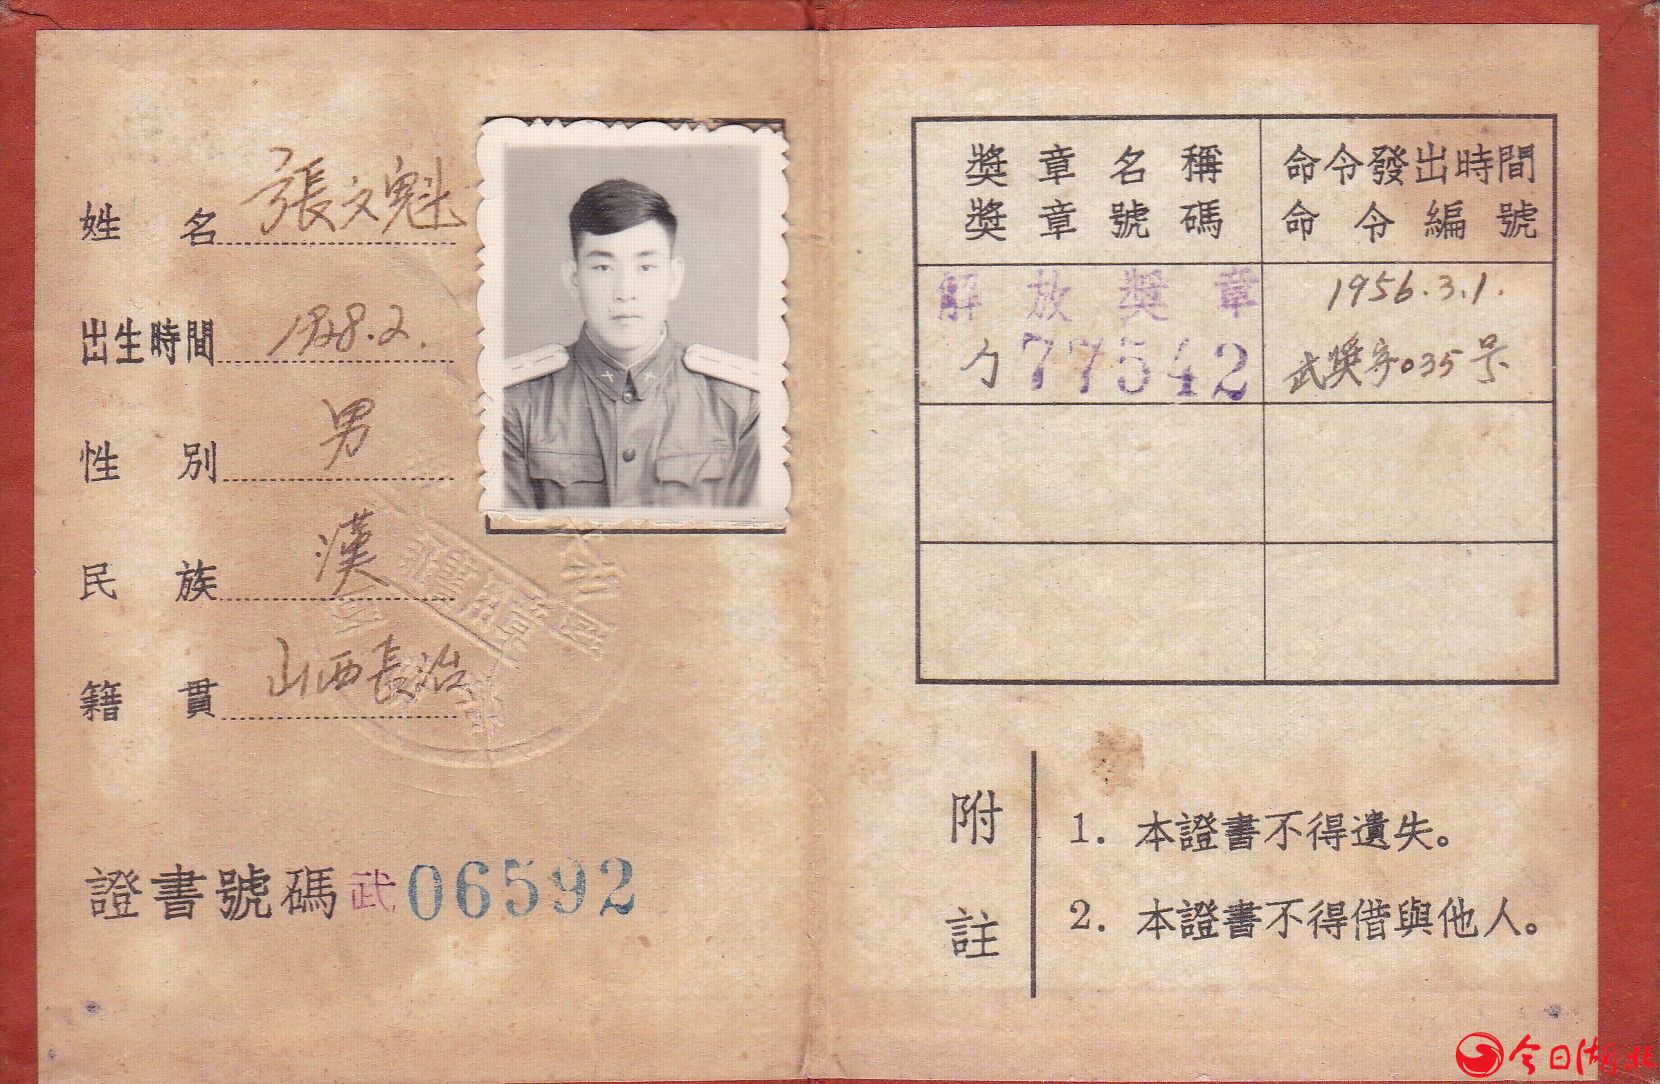 姓名 張文魁
出生時間 1928.2.
性別 男
民族 漢
籍貫 山西長治
證書號碼 武 06592
獎章名稱
獎章號碼
命令發出時間
命令編號
解放獎章
77542
1956.3.1.
武奬字035号
附註
1. 本證書不得遺失。
2. 本證書不得借與他人。
今日湖北